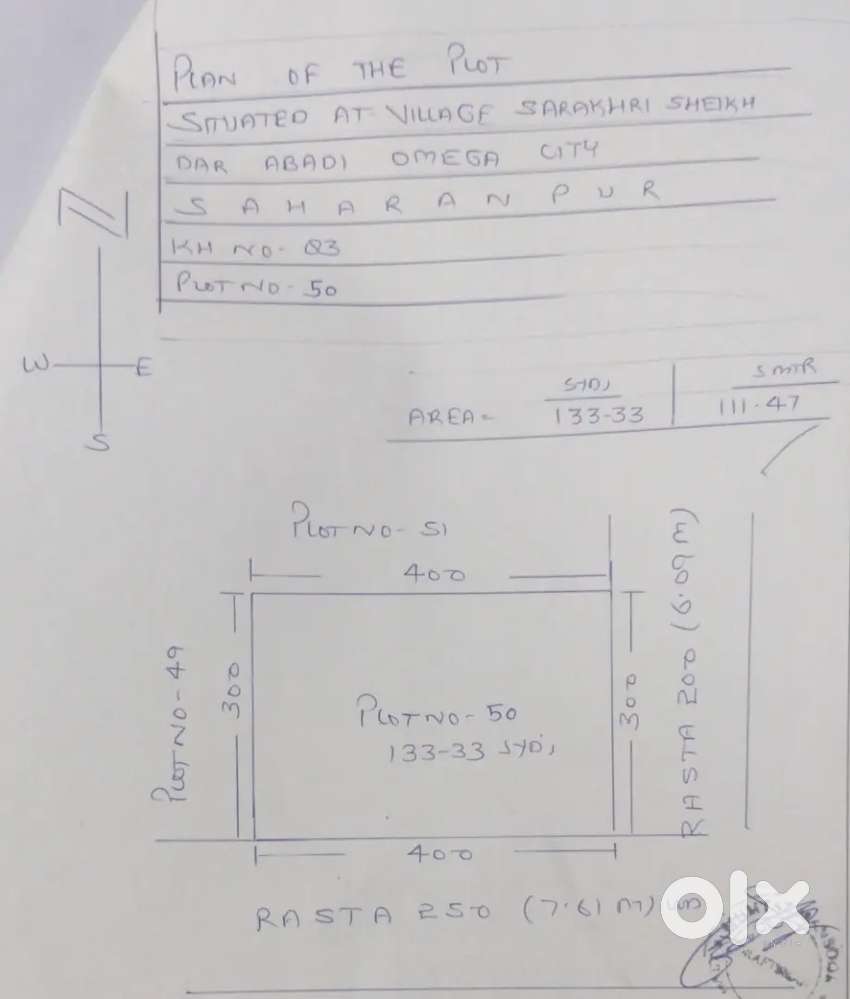 PLAN OF THE PLOT
SITUATED AT VILLAGE SARAKHRI SHEIKH
DAR ABADI OMEGA CITY
SAHARANPUR
KH NO- 83
PLOT NO - 50
N
W E
S
SYD, SMTR
AREA= 133-33 111.47
PLOT NO- 51
400
PLOT NO- 49
300
PLOT NO- 50
133-33 SYD,
300
RASTA 200 (6.09 M)
400
RASTA 250 (7.61 M)
olx